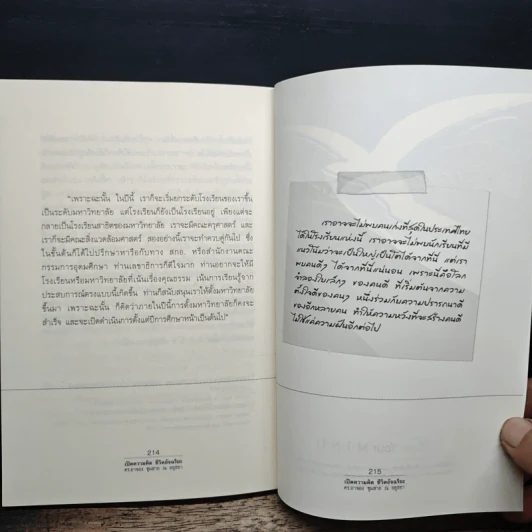 "เพราะฉะนั้น ในปีนี้ เราก็จะเริ่มยกระดับโรงเรียนของเราขึ้น
เป็นระดับมหาวิทยาลัย แต่โรงเรียนก็ยังเป็นโรงเรียนอยู่ เพียงแต่จะ
กลายเป็นโรงเรียนสาธิตของมหาวิทยาลัย เราจะมีคณะครุศาสตร์ และ
เราก็จะมีคณะสิ่งแวดล้อมศาสตร์ สองอย่างนี้เราจะทำควบคู่กันไป ซึ่ง
ในขั้นต้นก็ได้ไปปรึกษาหารือกับทาง สกอ. หรือสำนักงานคณะ
กรรมการอุดมศึกษา ท่านเลขาธิการก็ดีใจมาก ท่านอยากจะให้มี
โรงเรียนหรือมหาวิทยาลัยที่เน้นเรื่องคุณธรรม เน้นการเรียนรู้จาก
ประสบการณ์ตรงแบบนี้เกิดขึ้น ท่านก็สนับสนุนเราให้ตั้งมหาวิทยาลัย
ขึ้นมา เพราะฉะนั้น ก็คิดว่าภายในปีนี้การตั้งมหาวิทยาลัยก็คงจะ
สำเร็จ และจะเปิดดำเนินการตั้งแต่ปีการศึกษาหน้าเป็นต้นไป"
214
เปิดความคิด ชีวิตอัจฉริยะ
ดร.อาจอง ชุมสาย ณ อยุธยา
เราอาจจะไม่พบคนเก่งที่สุดในประเทศไทย
ได้ในโรงเรียนแห่งนี้ เราอาจจะไม่พบนักเรียนที่มี
แนวโน้มว่าจะเป็นใหญ่เป็นโตได้จากที่นี่ แต่เรา
พบคนดีๆ ได้จากที่นี่แน่นอน เพราะนี่คือโลก
จำลองใบเล็กๆ ของคนดี ที่เริ่มต้นจากความ
ตั้งใจดีของคนๆ หนึ่งร่วมกับความปรารถนาดี
ของอีกหลายคน ทำให้ความหวังที่จะสร้างคนดี
ไม่ใช่แค่ความฝันอีกต่อไป
215
เปิดความคิด ชีวิตอัจฉริยะ
ดร.อาจอง ชุมสาย ณ อยุธยา